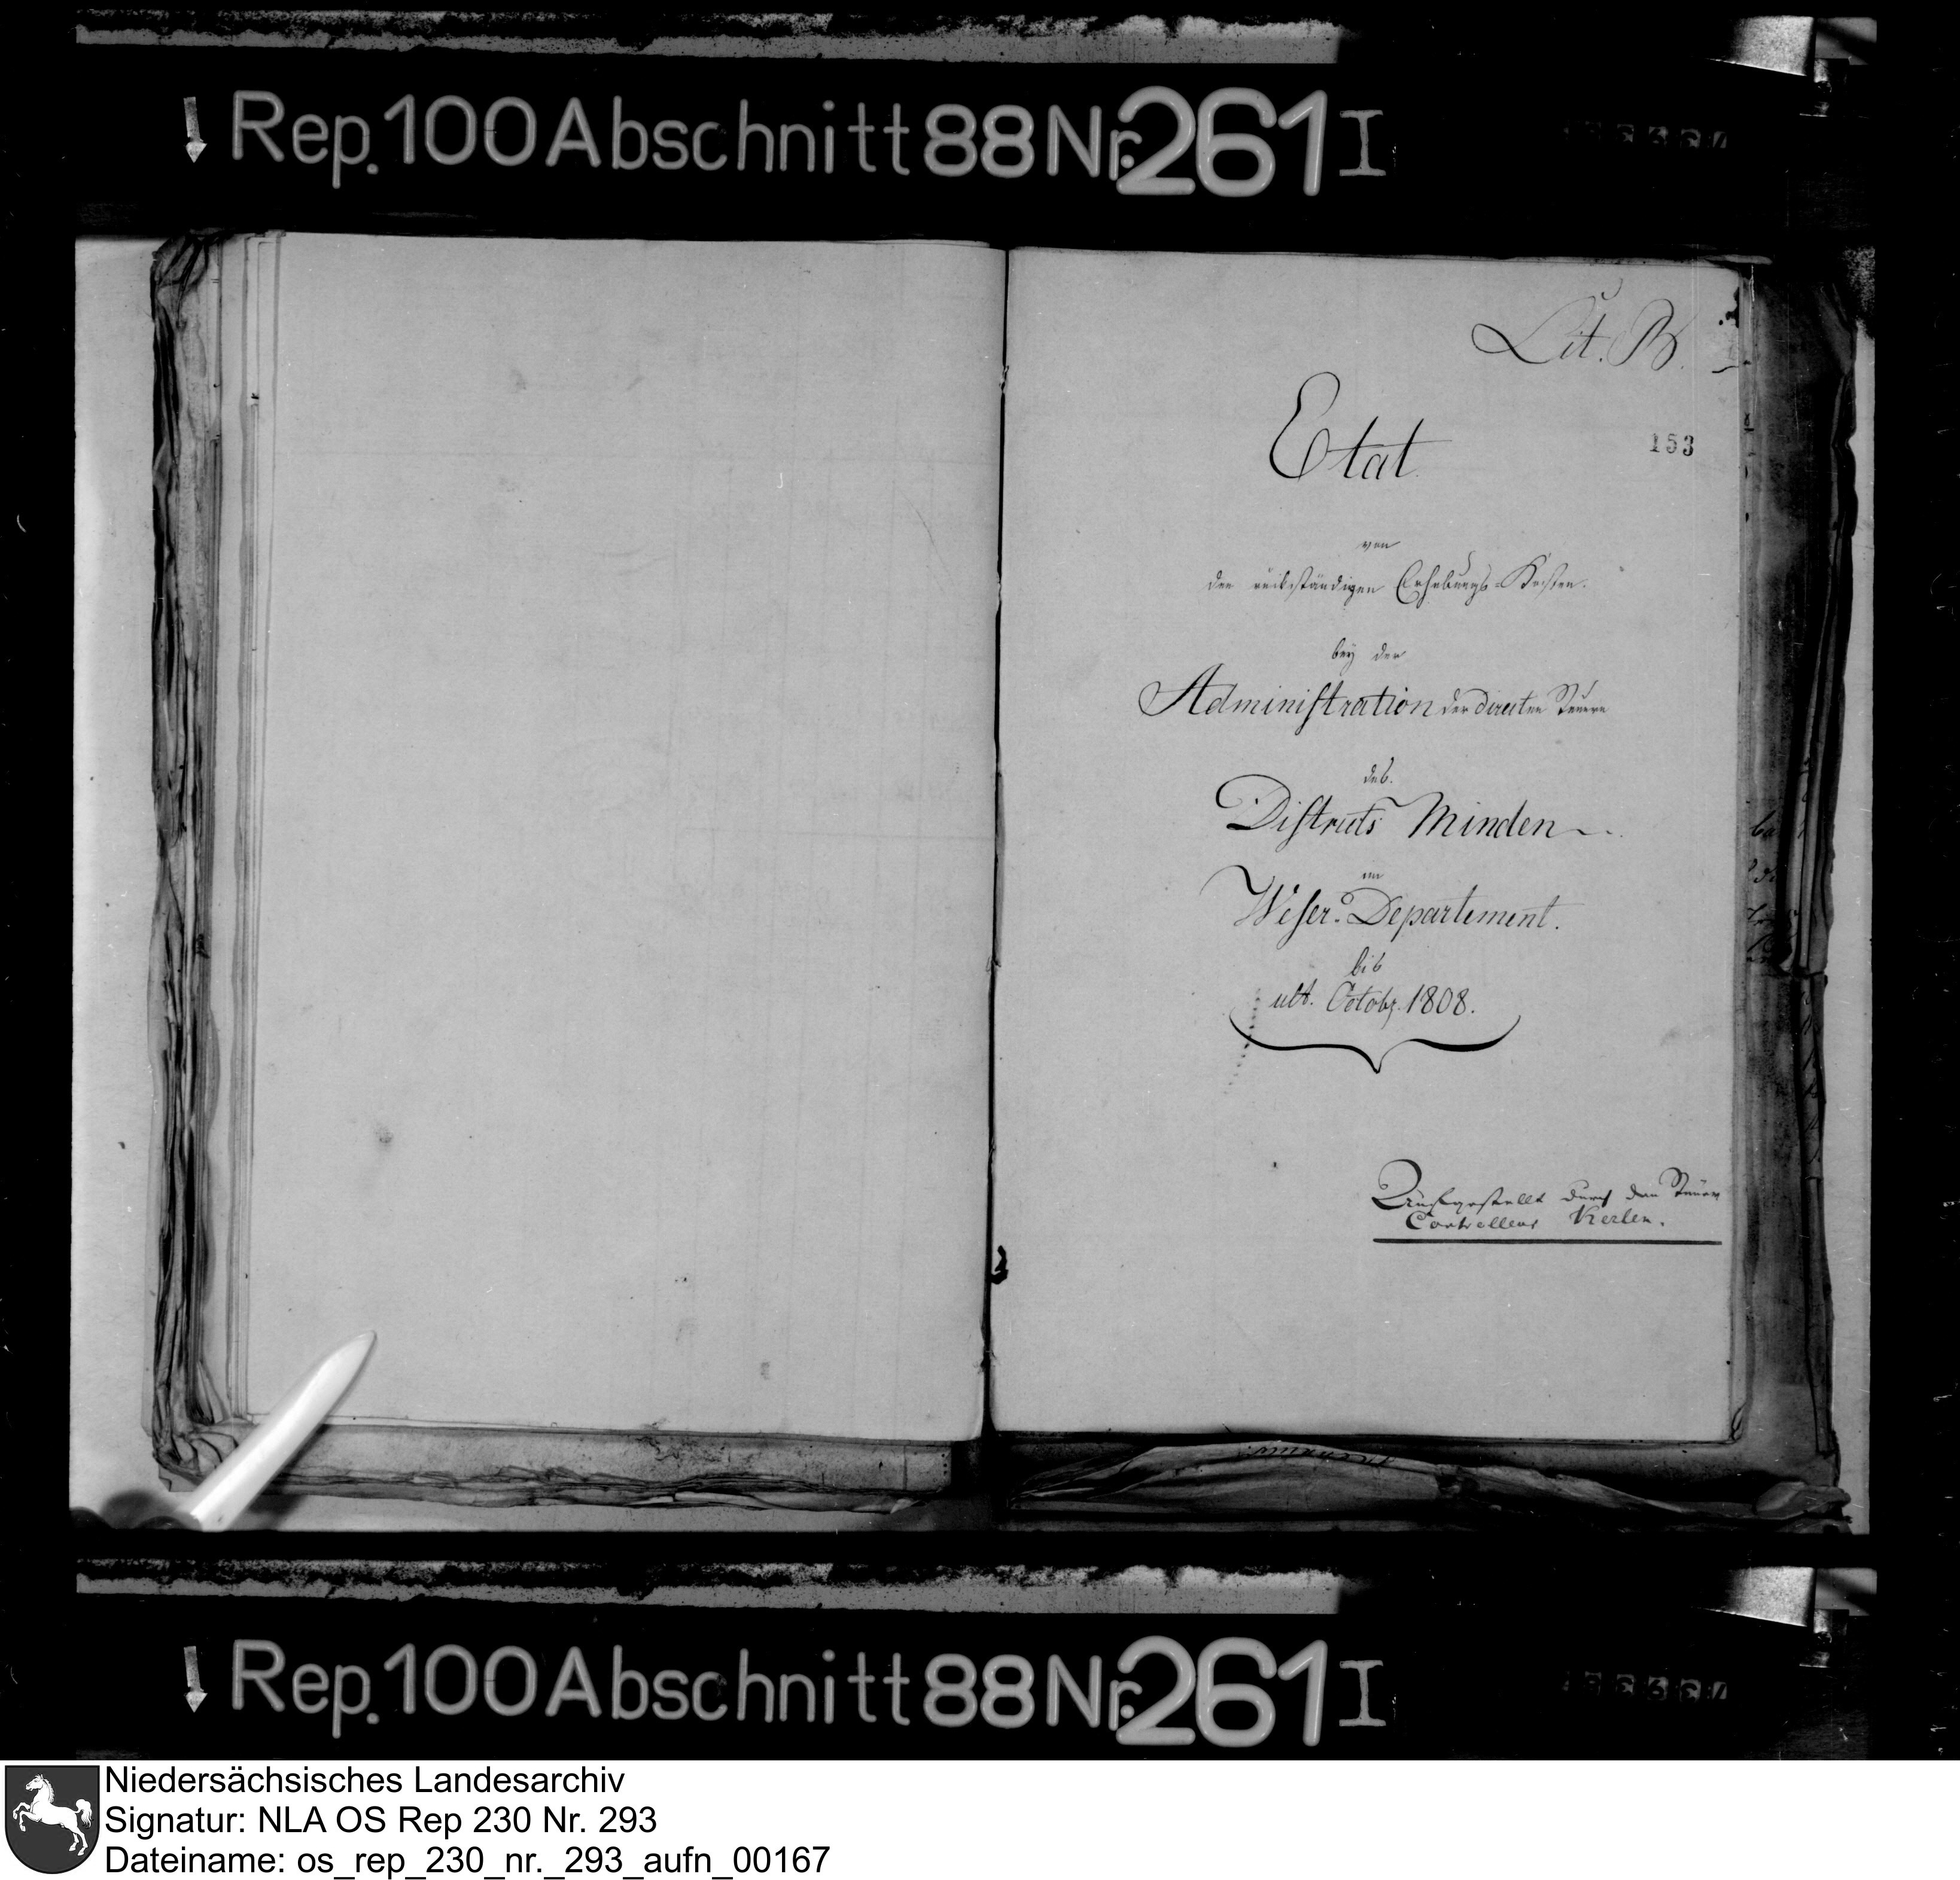 Rep. 100 Abschnitt 88 Nr. 261 I
Lit. B.
Etat
153
von
den rückständigen Erhebungs-Kosten.
bey der
Administration der directen Steuern
des
Districts Minden
im
Weser-Departement.
bis
ult. Octobr. 1808.
Aufgestellt durch den Steuer
Controlleur Kerlen.
Rep. 100 Abschnitt 88 Nr. 261 I
Niedersächsisches Landesarchiv
Signatur: NLA OS Rep 230 Nr. 293
Dateiname: os_rep_230_nr._293_aufn_00167